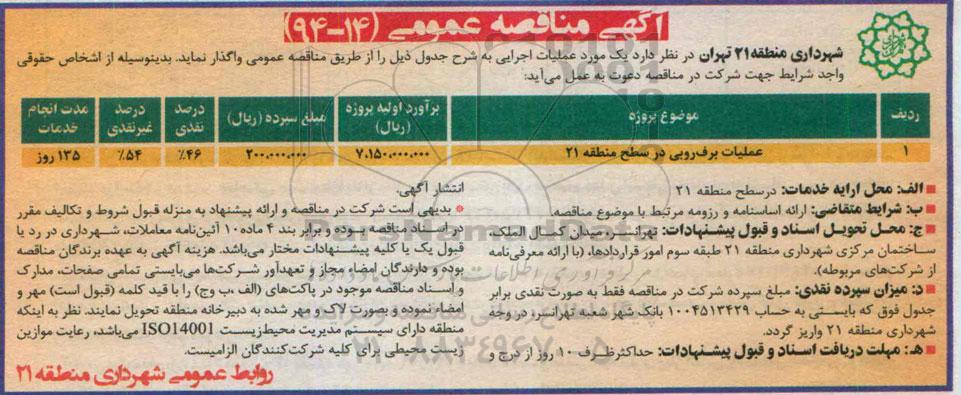 آگهی مناقصه عمومی (۱۴-۹۴)
شهرداری منطقه ۲۱ تهران در نظر دارد یک مورد عملیات اجرایی به شرح جدول ذیل را از طریق مناقصه عمومی واگذار نماید. بدینوسیله از اشخاص حقوقی
واجد شرایط جهت شرکت در مناقصه دعوت به عمل می‌آید:
ردیف موضوع پروژه برآورد اولیه پروژه (ریال) مبلغ سپرده (ریال) درصد نقدی درصد غیرنقدی مدت انجام خدمات
۱ عملیات برف‌روبی در سطح منطقه ۲۱ ۷،۱۵۰،۰۰۰،۰۰۰ ۲۰۰،۰۰۰،۰۰۰ ۴۶٪ ۵۴٪ ۱۳۵ روز
الف: محل ارایه خدمات: در سطح منطقه ۲۱
ب: شرایط متقاضی: ارائه اساسنامه و رزومه مرتبط با موضوع مناقصه.
ج: محل تحویل اسناد و قبول پیشنهادات: تهرانسر، میدان کمال الملک،
ساختمان مرکزی شهرداری منطقه ۲۱ طبقه سوم امور قراردادها، (با ارائه معرفی‌نامه
از شرکت‌های مربوطه).
د: میزان سپرده نقدی: مبلغ سپرده شرکت در مناقصه فقط به صورت نقدی برابر
جدول فوق که بایستی به حساب ۱۰۰۴۵۱۳۴۲۹ بانک شهر شعبه تهرانسر، در وجه
شهرداری منطقه ۲۱ واریز گردد.
هـ: مهلت دریافت اسناد و قبول پیشنهادات: حداکثر ظرف ۱۰ روز از درج و
انتشار آگهی.
* بدیهی است شرکت در مناقصه و ارائه پیشنهاد به منزله قبول شروط و تکالیف مقرر
در اسناد مناقصه بوده و برابر بند ۴ ماده ۱۰ آئین‌نامه معاملات، شهرداری در رد یا
قبول یک یا کلیه پیشنهادات مختار می‌باشد. هزینه آگهی به عهده برندگان مناقصه
بوده و دارندگان امضاء مجاز و تعهدآور شرکت‌ها می‌بایستی تمامی صفحات، مدارک
و اسناد مناقصه موجود در پاکت‌های (الف ،ب وج) را با قید کلمه (قبول است) مهر و
امضاء نموده و بصورت لاک و مهر شده به دبیرخانه منطقه تحویل نمایند. نظر به اینکه
منطقه دارای سیستم مدیریت محیط زیست ISO14001 می‌باشد، رعایت موازین
زیست محیطی برای کلیه شرکت‌کنندگان الزامیست.
روابط عمومی شهرداری منطقه ۲۱